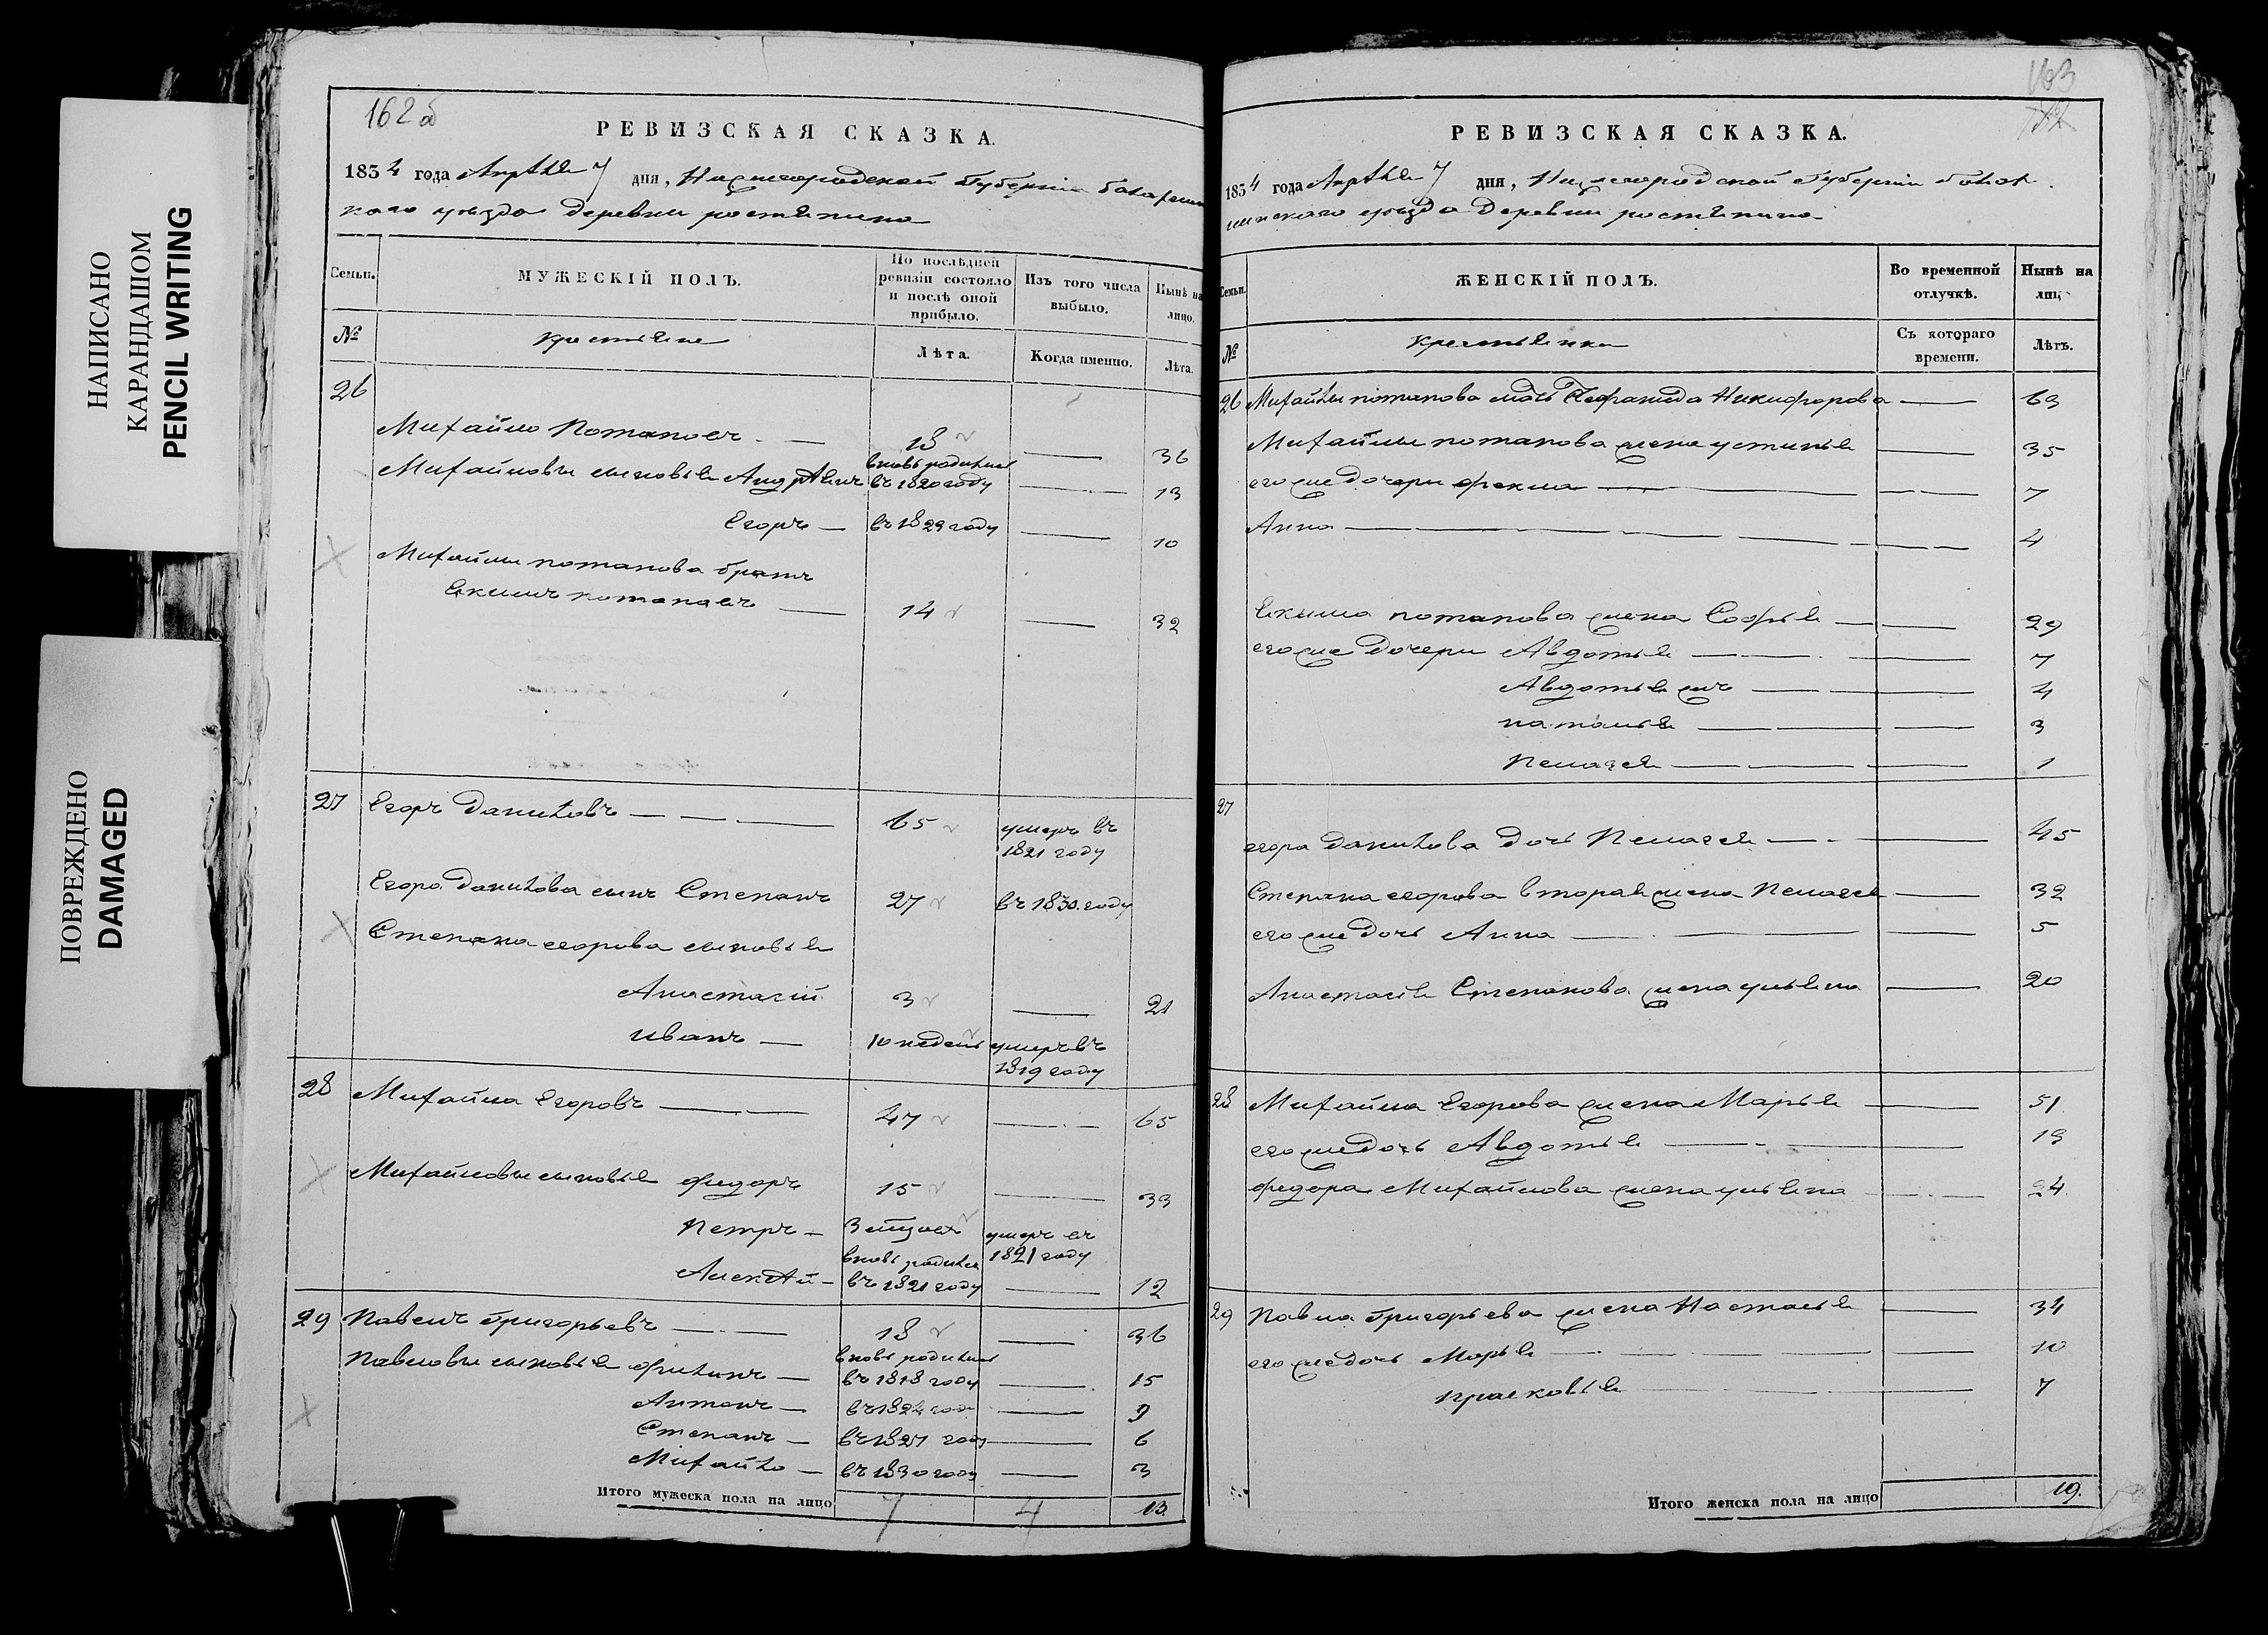 НАПИСАНО
КАРАНДАШОМ
PENCIL WRITING
ПОВРЕЖДЕНО
DAMAGED
162 об
РЕВИЗСКАЯ СКАЗКА.
1834 года Апрѣля 7 дня, Нижегородской Губерніи
уезда деревни
Семьи.
МУЖЕСКІЙ ПОЛЪ.
По послѣдней ревизіи состояло и послѣ оной прибыло.
Изъ того числа выбыло.
Нынѣ на лицо.
№
крестьяне
Лѣта.
Когда именно.
Лѣта.
26
Михайло Потаповъ — 18 — 36
Михайловы сыновья Андрѣянъ вновь родился въ 1820 году — 13
Егоръ — въ 1823 году — 10
Михайлы потапова братъ
Екимъ потаповъ — 14 — 32
27 Егоръ Даниловъ — 65 умеръ въ 1821 году
Егора Данилова сынъ Степанъ 27 въ 1830 году
Степана егорова сыновья
Анастасій 3 — 21
иванъ — 10 недель умеръ въ 1819 году
28 Михайла Егоровъ — 47 — 65
Михайловы сыновья федоръ 15 — 33
Петръ — 3 умеръ въ 1821 году
Алексѣй — вновь родился въ 1821 году — 12
29 Павелъ Григорьевъ — 18 — 36
Павловы сыновья филипъ — вновь родился въ 1818 году — 15
Антонъ — въ 1824 году — 9
Степанъ — въ 1827 году — 6
Михайло — въ 1830 году — 3
Итого мужеска пола на лицо 7 4 13.
163
РЕВИЗСКАЯ СКАЗКА.
1834 года Апрѣля 7 дня, Нижегородской Губерніи
уезда Деревни
Семьи.
ЖЕНСКІЙ ПОЛЪ.
Во временной отлучкѣ.
Нынѣ на лиц
№
крестьянки
Съ котораго времени.
Лѣтъ.
26 Михайлы потапова мать Никифорова — 63
Михайлы потапова жена устинья — 35
его же дочери фекла — 7
Анна — 4
Екима потапова жена Софья — 29
его же дочери Авдотья — 7
Авдотья жъ — 4
наталья — 3
Пелагея — 1
27
егора Данилова дочь Пелагея — 45
Степана егорова вторая жена Пелагея — 32
его же дочь Анна — 5
Анастасія Степанова жена ульяна — 20
28 Михайла Егорова жена Марья — 51
его же дочь Авдотья — 19
федора Михайлова жена ульяна — 24
29 Павла Григорьева жена Настасья — 34
его же дочь Марья — 10
прасковья — 7
Итого женска пола на лицо 19.